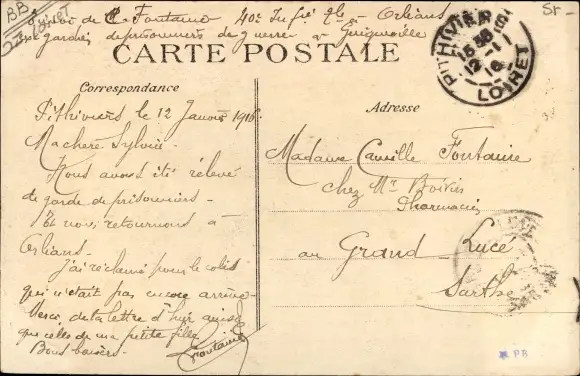 de C. Fontaine 40e Orléans
gardes de prisonniers de guerre à Guigneville
CARTE POSTALE
PITHIVIERS
12-1
16
LOIRET
Correspondance
Pithiviers le 12 Janvier 1916.
Ma chère Sylvie.
Nous avons été relevé
de garde de prisonniers -
Et nous retournons à
Orléans.
J'ai réclamé pour le colis
qui n'était pas encore arrivé.
de ta lettre d'hier ainsi
que celles de ma petite fille
Bons baisers.
Fontaine
Adresse
Madame Camille Fontaine
chez Mr Boivin
Pharmacien
au Grand-Lucé
Sarthe
PB